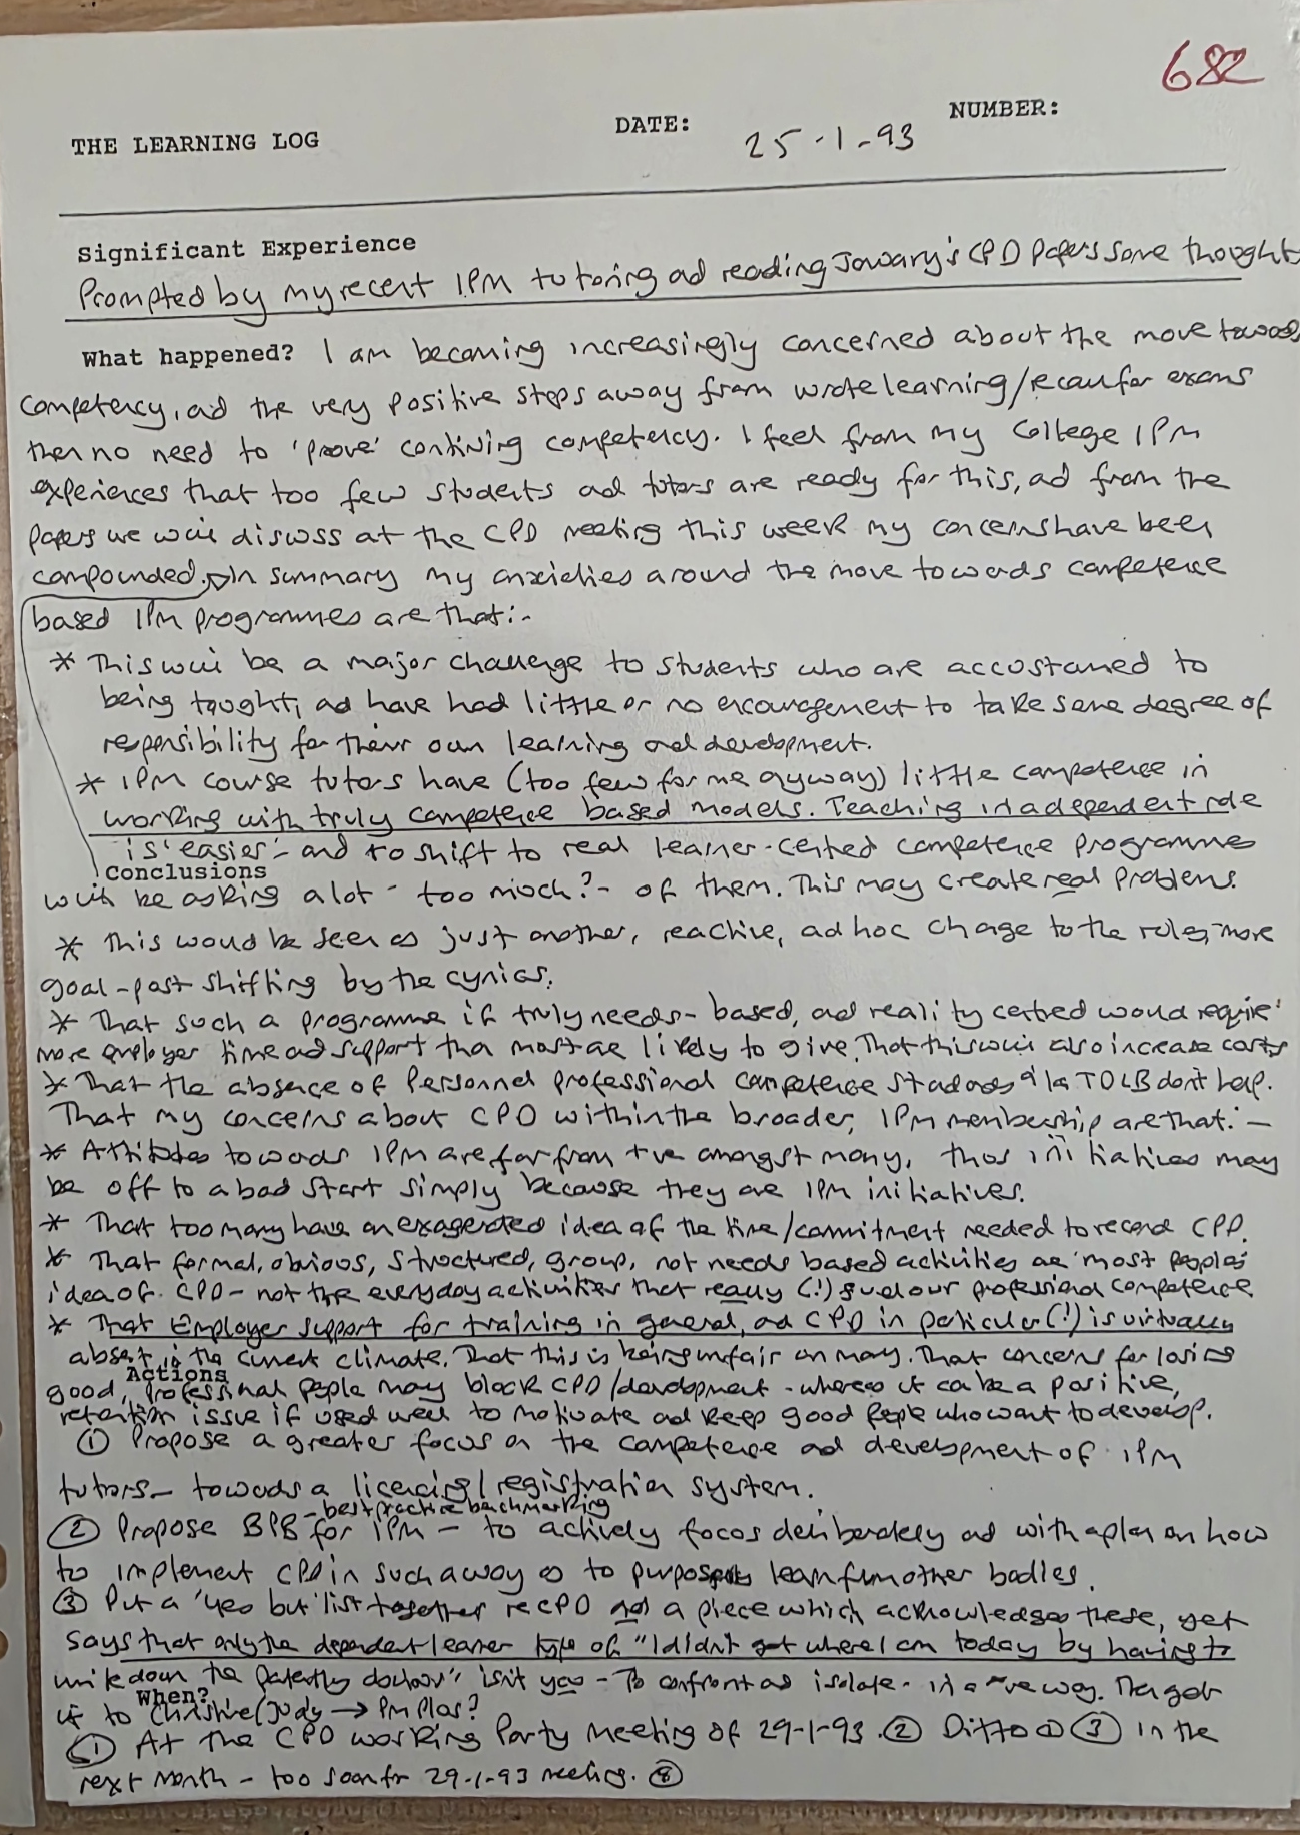 682
THE LEARNING LOG DATE: 25-1-93 NUMBER:
Significant Experience
Prompted by my recent IPM tutoring ad reading Jowary's CPD Papers some thoughts
What happened? I am becoming increasingly concerned about the move towards
competency, ad the very positive steps away from wrote learning/ for exams
then no need to 'prove' continuing competency. I feel from my College IPM
experiences that too few students ad tutors are ready for this, ad from the
papers we will discuss at the CPD meeting this week my concerns have been
compounded. In summary my anxieties around the move towards competence
based IPM programmes are that:-
* This will be a major challenge to students who are accustomed to
being taught, ad have had little or no encouragement to take some degree of
responsibility for their own learning and development.
* IPM course tutors have (too few for me anyway) little competence in
working with truly competence based models. Teaching in a dependent role
is 'easier' - and to shift to real learner-centred competence programmes
Conclusions
will be asking a lot - too much? - of them. This may create real problems.
* This would be seen as just another, reactive, ad hoc change to the rules, more
goal-post shifting by the cynics.
* That such a programme if truly needs-based, ad reality centred would require
more employer time ad support than most are likely to give. That this will also increase costs
* That the absence of Personnel professional competence standards a la TDLB don't help.
That my concerns about CPD within the broader, IPM membership are that:-
* Attitudes towards IPM are far from +ve amongst many, thus initiatives may
be off to a bad start simply because they are IPM initiatives.
* That too many have an exagerated idea of the time/commitment needed to record CPD.
* That formal, obvious, structured, group, not needs based activities are most peoples'
idea of CPD - not the everyday activities that really (!) our professional competence
* That Employer support for training in general, ad CPD in particular (!) is virtually
absent in the current climate. That this is being unfair on many. That concerns for losing
Actions
good, professional people may block CPD/development - whereas it can be a positive,
retention issue if used well to motivate ad keep good people who want to develop.
① Propose a greater focus on the competence ad development of IPM
tutors - towards a licencing/registration system.
- best practice benchmarking
② Propose BPB for IPM - to actively focus deliberately ad with a plan on how
to implement CPD in such a way as to learn from other bodies.
③ Put a 'yes but' list together re CPD and a piece which acknowledges these, yet
says that only the dependent learner type of "I didn't get where I am today by having to
write down the patently obvious" isn't you - To confront ad isolate - in a -ve way. Then get
When?
it to Christine/Judy → PM Plus?
① At the CPD working Party Meeting of 29-1-93. ② Ditto ① ③ in the
next month - too soon for 29-1-93 meeting. ⑧